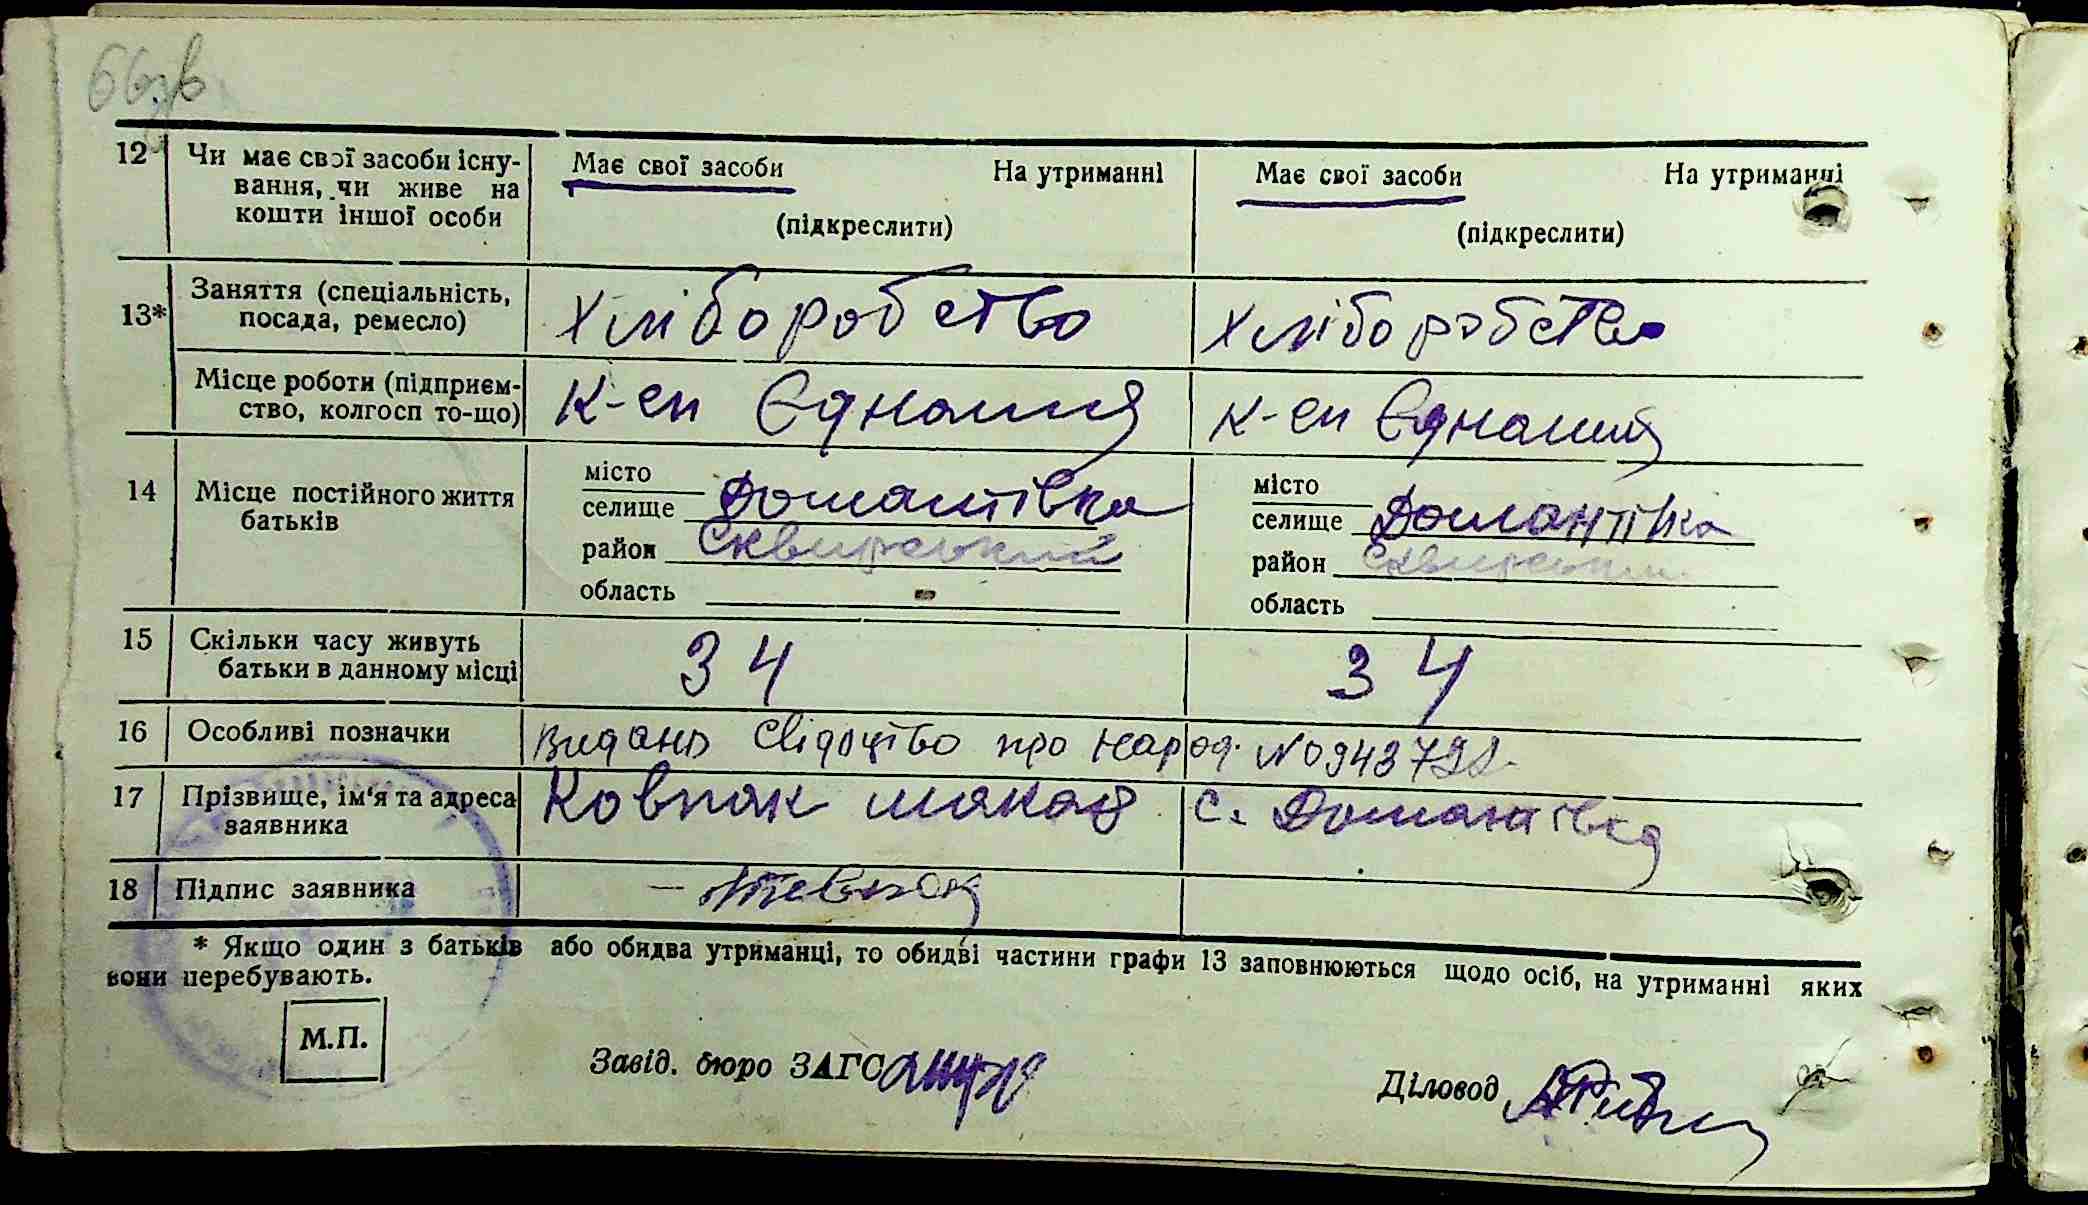 66зв
12 Чи має свої засоби існу- Має свої засоби На утриманні Має свої засоби На утриманні
вання, чи живе на
кошти іншої особи (підкреслити) (підкреслити)
13* Заняття (спеціальність, Хліборобство Хліборобство
посада, ремесло)
Місце роботи (підприєм- К-сп Єднання К-сп Єднання
ство, колгосп то-що)
14 Місце постійного життя місто місто
батьків селище Домантівка селище Домантівка
район Сквирський район Сквирський
область - область
15 Скільки часу живуть 34 34
батьки в данному місці
16 Особливі позначки Видано Свідоцтво про народ. №0943792
17 Прізвище, ім'я та адреса Ковпак с. Домантівка
заявника
18 Підпис заявника
* Якщо один з батьків або обидва утриманці, то обидві частини графи 13 заповнюються щодо осіб, на утриманні яких
вони перебувають.
М.П.
Завід. бюро ЗАГС Діловод